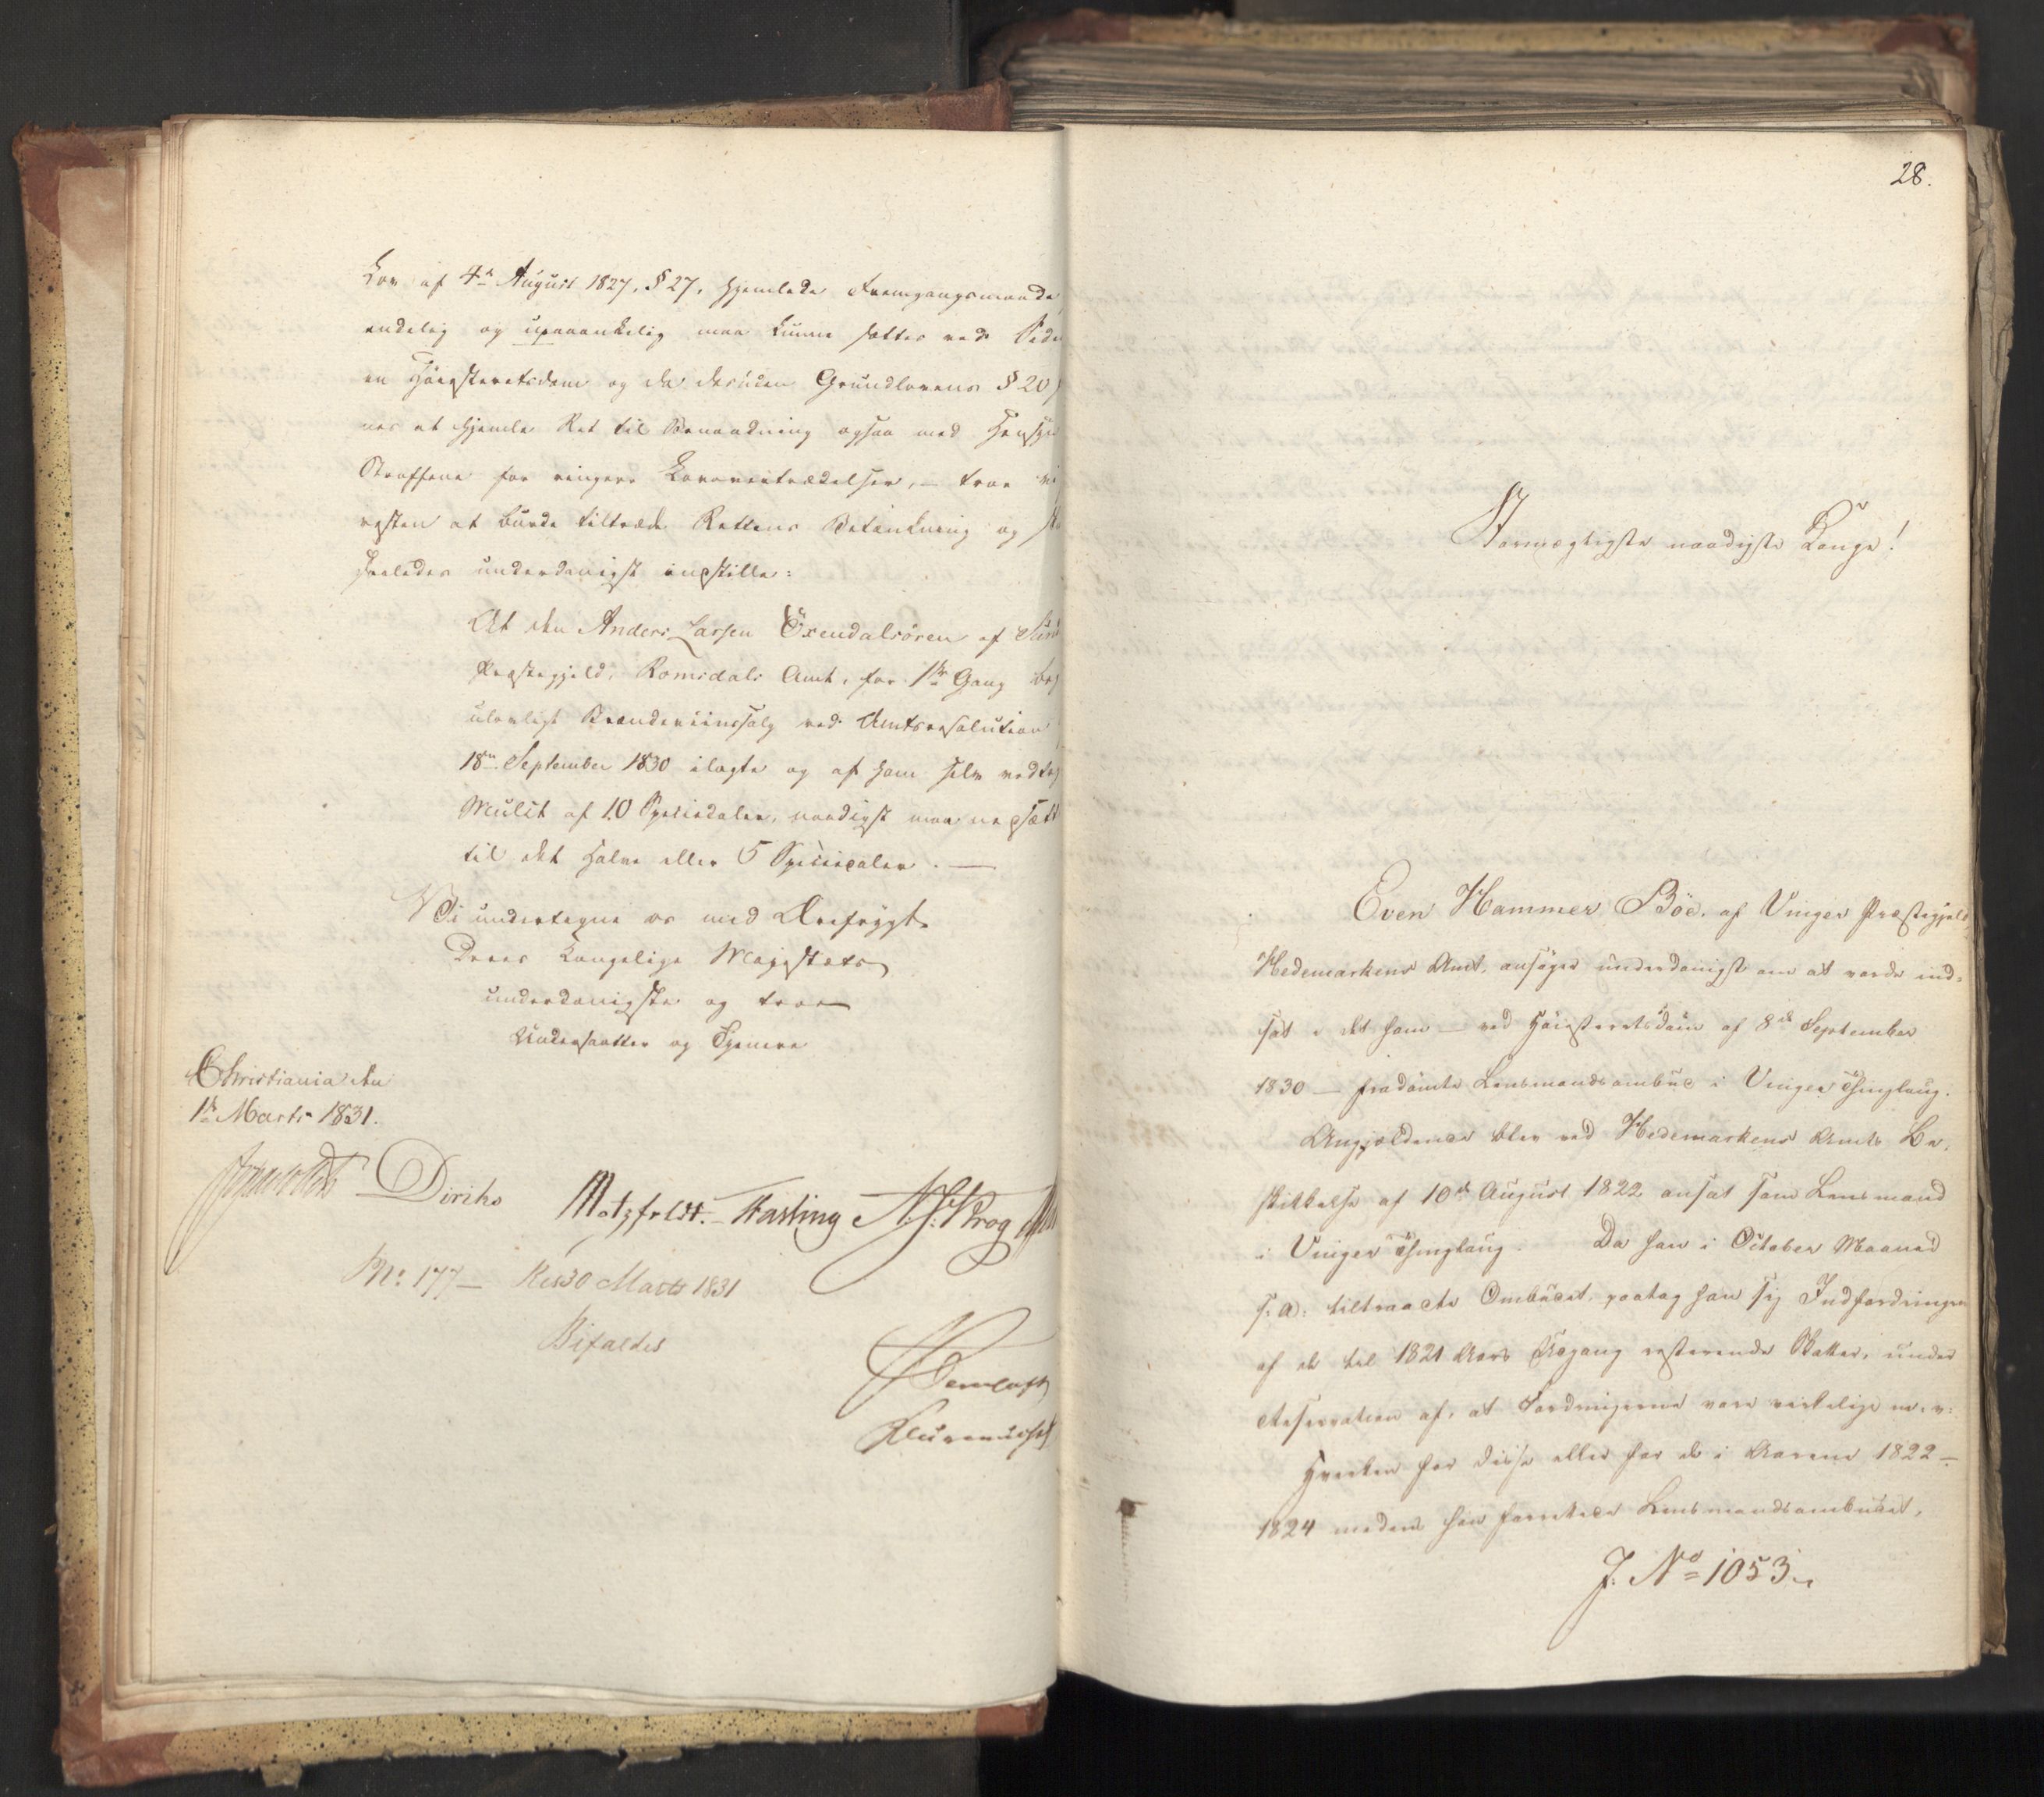 Lov af 4de August 1827, § 27, hjemlede Fremgangsmaade
endelig og upaaankelig maa kunne sættes ved Side
en Höiesteretsdom og da desuden Grundlovens § 20
nes at hjemle Ret til Benaadning ogsaa med Hensyn
Straffene for ringere Lovovertrædelser, – troe vi
resten at burde tiltræde Rettens Betænkning og
saaledes underdanigst indstille:
At den Anders Larsen Öxendalsören af
Præstegjeld, Romsdals Amt, for 1ste Gang
ulovligt Brændeviinssalg ved Amtsresolution
18de September 1830 ilagte og af ham selv vedtag
Mulct af 10 Speciedaler, naadigst maa nedsætt
til det Halve eller 5 Speciedaler. —
Vi undertegne os med Ærefrygt
Deres Kongelige Majestæts
underdanigste og troe
Undersaatter og Tjenere
Christiania den
1ste Marts 1831.
Diriks Motzfeldt. Fasting
No 177 — Res 30 Marts 1831
Bifaldes
28.
Stormægtigste naadigste Konge!
Even Hammer Böe, af Vinger Præstegjeld,
Hedemarkens Amt, ansöger underdanigst om at vorde ind-
sat i det ham — ved Höiesteretsdom af 8de September
1830 — fradömte Lensmandsombud i Vinger Thinglaug.
Angjældende blev ved Hedemarkens Amts Be-
skikkelse af 10de August 1822 ansat som Lensmand
i Vinger Thinglaug. Da han i October Maaned
s. A. tiltraadte Ombudet, paatog han sig Indfordringen
af de til 1821 Aars Udgang resterende Skatter, under
Reservation af, at Fordringerne vare virkelige m. v.
Hverken for disse eller for de i Aarene 1822 –
1824 medens han forrettede Lensmandsombudet,
J. No 1053.